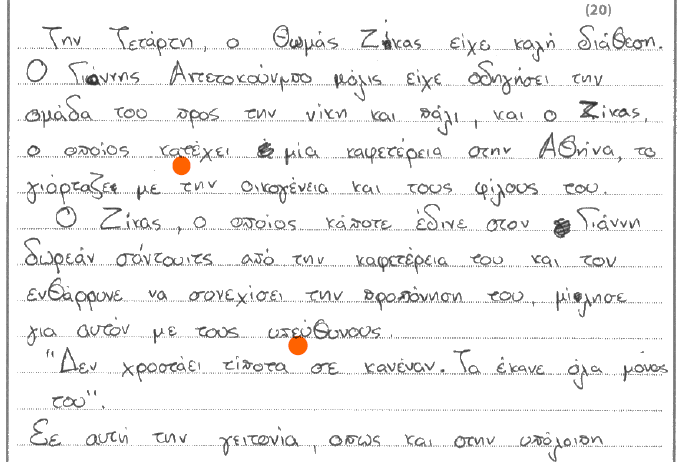 (20)
Την Τετάρτη, ο Θωμάς Ζίκας είχε καλή διάθεση.
Ο Γιάννης Αντετοκούνμπο μόλις είχε οδηγήσει την
ομάδα του προς την νίκη και πάλι, και ο Ζίκας,
ο οποίος κατέχει μία καφετέρεια στην Αθήνα, το
γιόρταζε με την οικογένεια και τους φίλους του.
Ο Ζίκας, ο οποίος κάποτε έδινε στον Γιάννη
δωρεάν σάντουιτς από την καφετέρεια του και τον
ενθάρρυνε να συνεχίσει την προπόνηση του, μίλησε
για αυτόν με τους υπεύθυνους.
"Δεν χροστάει τίποτα σε κανέναν. Τα έκανε όλα μόνος
του".
Σε αυτή την γειτονία, οπως και στην υπόλοιπη